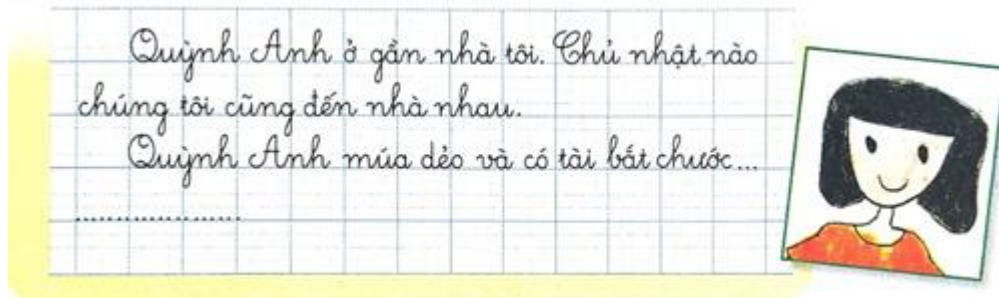 Quỳnh Anh ở gần nhà tôi. Chủ nhật nào
chúng tôi cũng đến nhà nhau.
Quỳnh Anh múa dẻo và có tài bắt chước...
...................